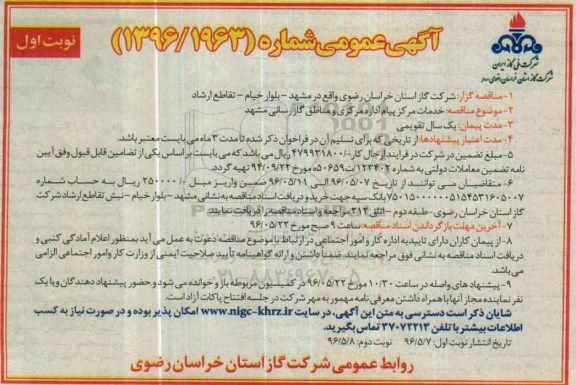 نوبت اول
آگهی عمومی شماره (۱۳۹۶/۱۹۶۳)
شرکت ملی گاز ایران
شرکت گاز استان خراسان رضوی
۱- مناقصه گزار: شرکت گاز استان خراسان رضوی واقع در مشهد - بلوار خیام - تقاطع ارشاد
۲- موضوع مناقصه: خدمات مرکز پیام اداره مرکزی و مناطق گازرسانی مشهد
۳- مدت پیمان: یک سال تقویمی
۴- مدت اعتبار پیشنهادها: از تاریخی که برای تسلیم آن در فراخوان ذکر شده تا مدت ۳ ماه می بایست معتبر باشد.
۵- مبلغ تضمین در شرکت در فرایند ارجال کار: /۴۷۹۹۳۱۸۰۰ ریال می باشد که می بایست بر اساس یکی از تضامین قابل قبول وفق آیین
نامه تضمین معاملات دولتی به شماره ۱۲۳۴۰۲/ت۵۰۶۵۹ه مورخ ۹۴/۰۹/۲۲ تهیه گردد.
۶- متقاضیان می توانند از تاریخ ۹۶/۰۵/۰۷ الی ۹۶/۰۵/۱۱ ضمن واریز مبلغ /۲۵۰۰۰۰ ریال به حساب شماره
بانک سپه جهت خرید و دریافت اسناد مناقصه به نشانی مشهد - بلوار خیام - نبش تقاطع ارشاد شرکت
گاز استان خراسان رضوی - طبقه دوم - اتاق ۳۱۲ مراجعه و اسناد مناقصه را دریافت نمایند.
۷- آخرین مهلت بازگرداندن اسناد مناقصه: ساعت ۹ صبح مورخ ۹۶/۰۵/۲۲
۸- از پیمان کاران دارای تاییدیه اداره کار و امور اجتماعی در ارتباط با موضوع مناقصه دعوت به عمل می آید بمنظور اعلام آمادگی کتبی و
دریافت اسناد مناقصه به نشانی فوق مراجعه نمایند. ضمنا داشتن و ارائه گواهینامه تأیید صلاحیت ایمنی از وزارت کار و امور اجتماعی الزامی
می باشد.
۹- پیشنهاد های واصله در ساعت ۱۰/۳۰ مورخ ۹۶/۰۵/۲۲ در کمیسیون مربوطه باز و خوانده می شود و حضور پیشنهاد دهندگان و یا یک
نفر نماینده مجاز آنها با همراه داشتن معرفی نامه ممهور به مهر شرکت در جلسه افتتاح پاکات آزاد است.
شایان ذکر است دسترسی به متن این آگهی، در سایت www.nigc-khrz.ir امکان پذیر بوده و در صورت نیاز به کسب
اطلاعات بیشتر با تلفن ۳۷۰۷۲۲۱۳ تماس بگیرید.
تاریخ انتشار نوبت اول: ۹۶/۵/۷ نوبت دوم: ۹۶/۵/۸
روابط عمومی شرکت گاز استان خراسان رضوی